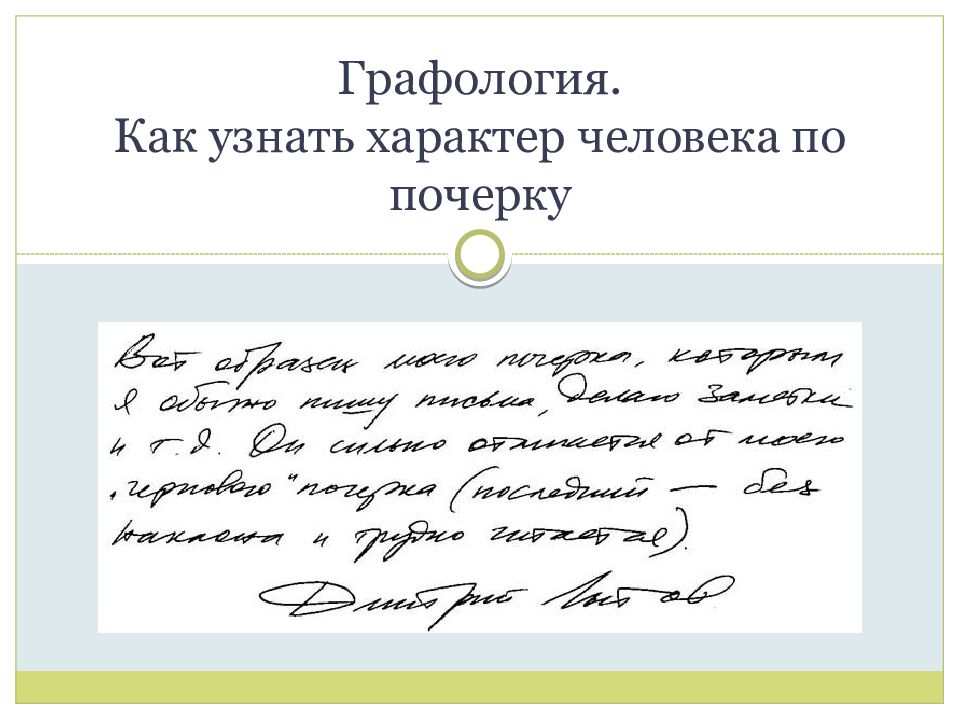 Графология.
Как узнать характер человека по
почерку
Вот образец моего почерка, которым
я обычно пишу письма, делаю заметки
и т.д. Он сильно отличается от моего
"чернового" почерка (последний – без
наклона и трудно читается).
Дмитрий Лытов